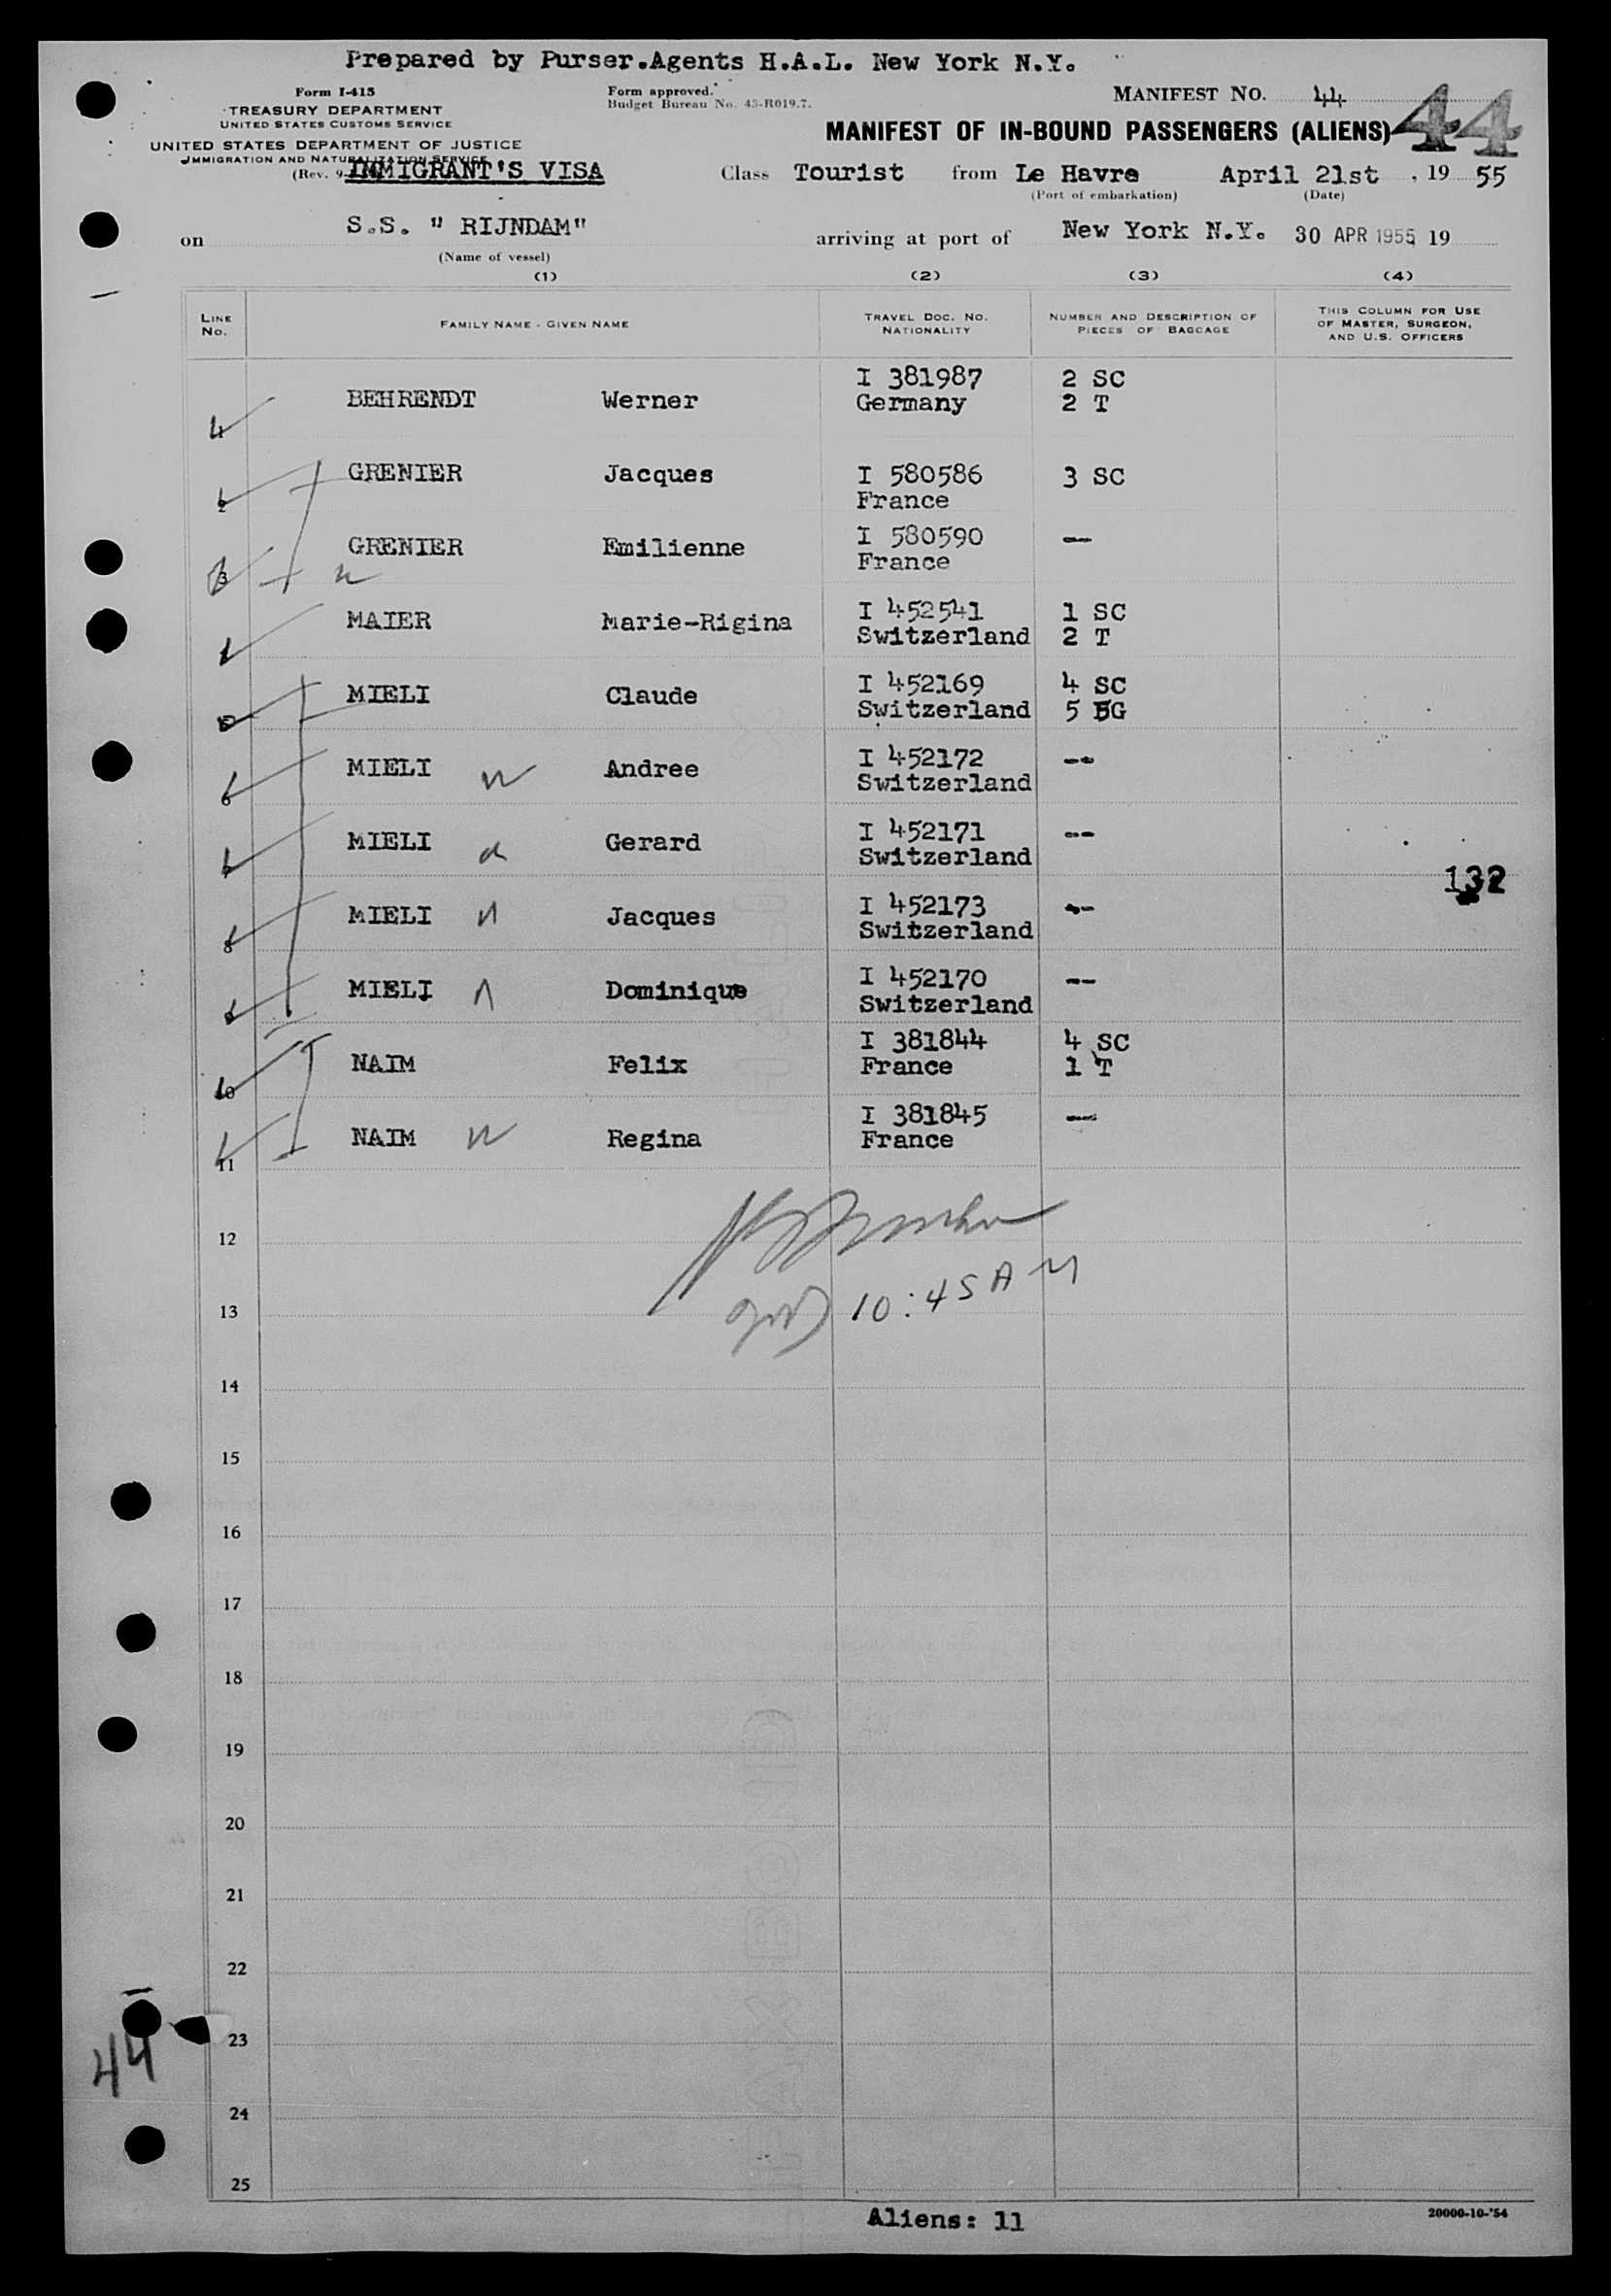 Prepared by Purser.Agents H.A.L. New York N.Y.
Form I-415
TREASURY DEPARTMENT
UNITED STATES CUSTOMS SERVICE
UNITED STATES DEPARTMENT OF JUSTICE
IMMIGRATION AND NATURALIZATION SERVICE
(Rev. 9-
IMMIGRANT'S VISA
Form approved.
Budget Bureau No. 43-R019.7.
MANIFEST NO. 44
44
MANIFEST OF IN-BOUND PASSENGERS (ALIENS)
Class Tourist from Le Havre April 21st, 19 55
(Port of embarkation) (Date)
on S.S. " RIJNDAM" arriving at port of New York N.Y. 30 APR 1955 19
(Name of vessel)
(1) (2) (3) (4)
LINE NO.
FAMILY NAME - GIVEN NAME
TRAVEL DOC. NO. NATIONALITY
NUMBER AND DESCRIPTION OF PIECES OF BAGGAGE
THIS COLUMN FOR USE OF MASTER, SURGEON, AND U.S. OFFICERS
I 381987 2 SC
BEHRENDT Werner Germany 2 T
GRENIER Jacques I 580586 3 SC
France
I 580590 —
3 GRENIER Emilienne France
I 452541 1 SC
MAIER Marie-Rigina Switzerland 2 T
I 452169 4 SC
5 MIELI Claude Switzerland 5 BG
I 452172 --
6 MIELI Andree Switzerland
I 452171 --
MIELI Gerard Switzerland
132
I 452173 --
8 MIELI Jacques Switzerland
I 452170 --
9 MIELI Dominique Switzerland
I 381844 4 SC
10 NAIM Felix France 1 T
I 381845 —
11 NAIM Regina France
12
10:45 AM
13
14
15
16
17
18
19
20
21
22
23
44
24
25
Aliens: 11
20000-10-'54